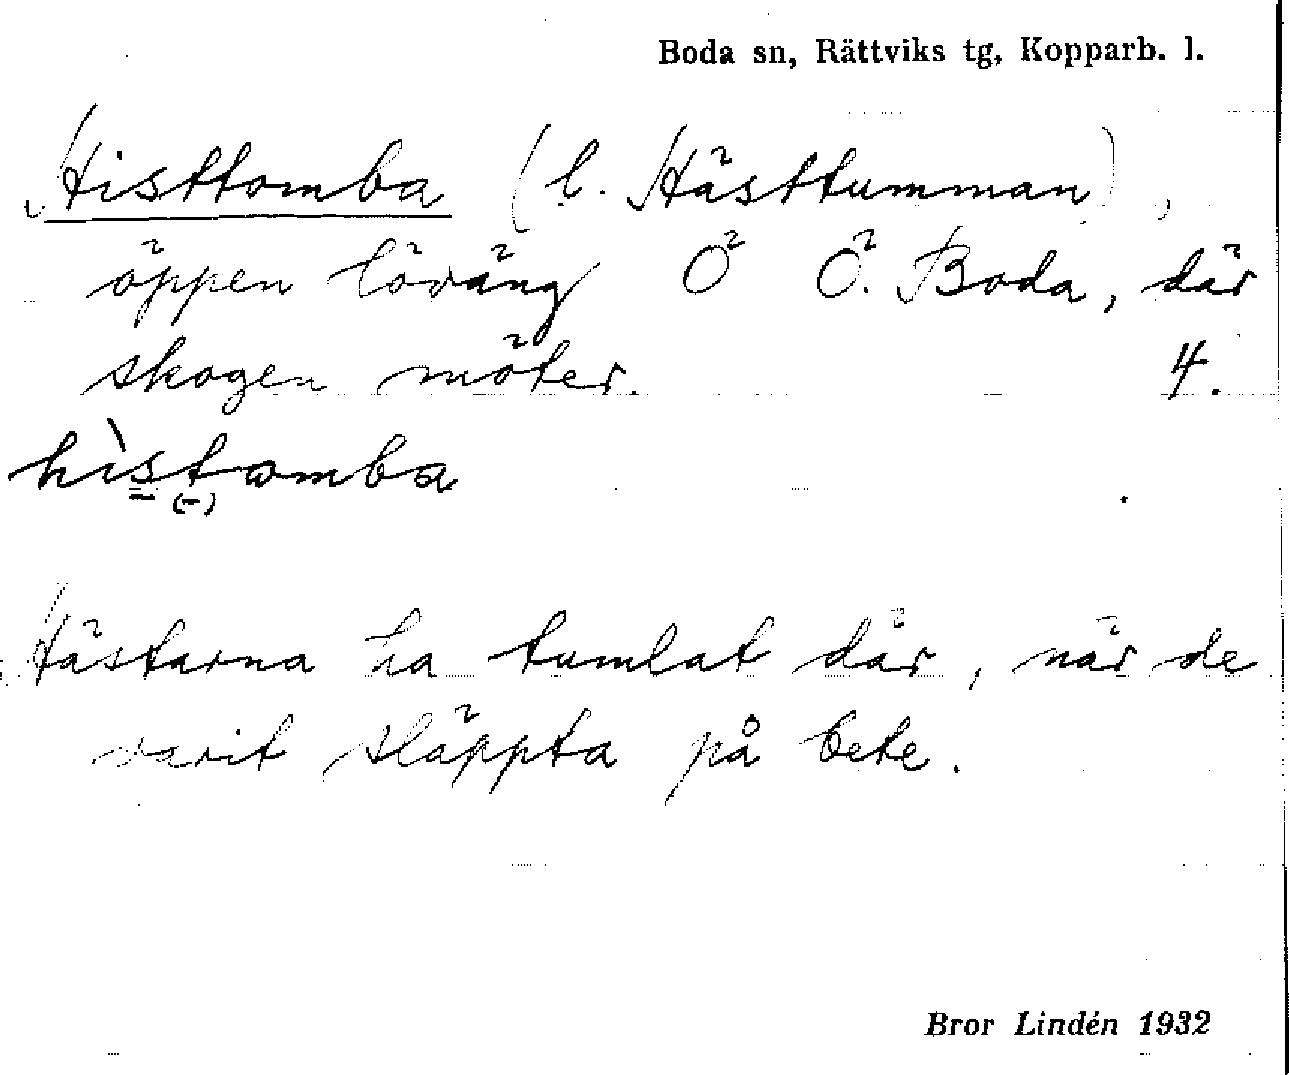 Boda sn, Rättviks tg, Kopparb. l.
Histtomba (l. Hästtumman),
öppen löväng Ö Ö. Boda, där
skogen möter. 4.
hìstomba
Hästarna ha tumlat där, när de
varit släppta på bete.
Bror Lindén 1932